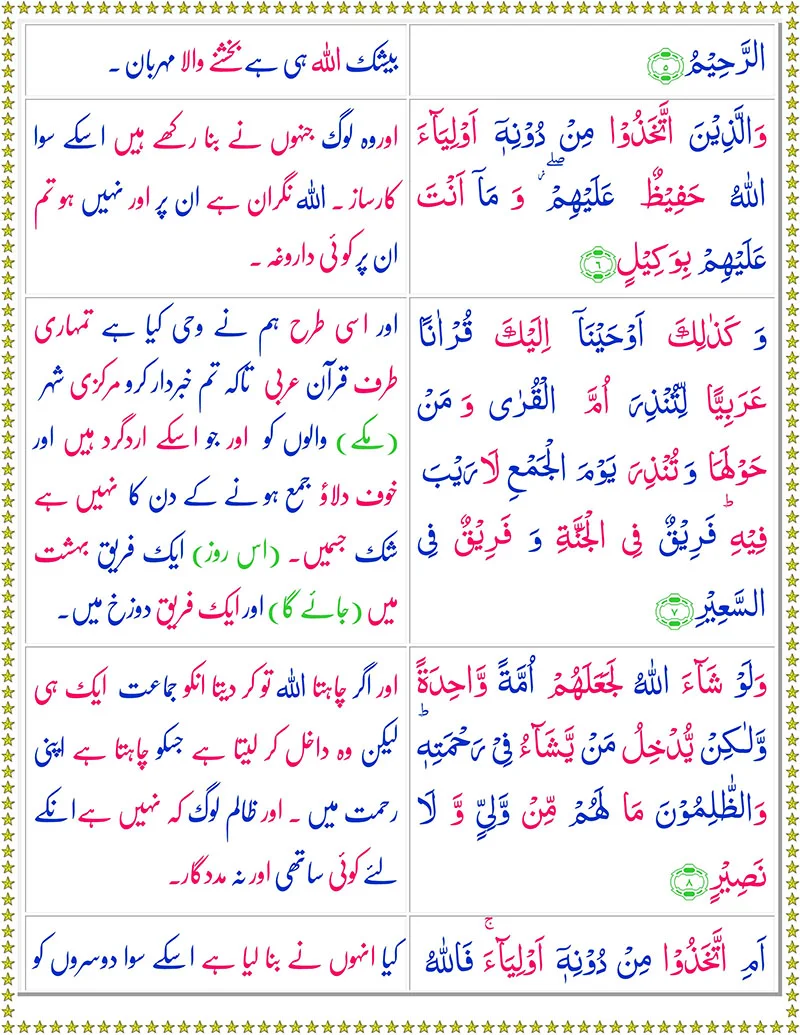 الرَّحِيْمُ ﴿۵﴾
بیشک اللہ ہی ہے بخشنے والا مہربان ۔
وَالَّذِيْنَ اتَّخَذُوْا مِنْ دُوْنِهٖۤ اَوْلِيَآءَ
اللهُ حَفِيْظٌ عَلَيْهِمْ ۖ٘ وَ مَاۤ اَنْتَ
عَلَيْهِمْ بِوَكِيْلٍ ﴿۶﴾
اوروہ لوگ جنہوں نے بنا رکھے ہیں اسکے سوا
کارساز ۔ اللہ نگران ہے ان پر اور نہیں ہو تم
ان پر کوئی داروغہ ۔
وَ كَذٰلِكَ اَوْحَيْنَاۤ اِلَيْكَ قُرْاٰنًا
عَرَبِيًّا لِّتُنْذِرَ اُمَّ الْقُرٰى وَ مَنْ
حَوْلَهَا وَ تُنْذِرَ يَوْمَ الْجَمْعِ لَا رَيْبَ
فِيْهِ ؕ فَرِيْقٌ فِى الْجَنَّةِ وَ فَرِيْقٌ فِى
السَّعِيْرِ ﴿۷﴾
اور اسی طرح ہم نے وحی کیا ہے تمہاری
طرف قرآن عربی تاکہ تم خبردار کرو مرکزی شہر
(مکے) والوں کو اور جو اسکے اردگرد ہیں اور
خوف دلاؤ جمع ہونے کے دن کا نہیں ہے
شک جسمیں۔ (اس روز) ایک فریق بہشت
میں (جائے گا) اور ایک فریق دوزخ میں۔
وَلَوْ شَآءَ اللهُ لَجَعَلَهُمْ اُمَّةً وَّاحِدَةً
وَّلٰكِنْ يُّدْخِلُ مَنْ يَّشَآءُ فِىْ رَحْمَتِهٖ ؕ
وَالظّٰلِمُوْنَ مَا لَهُمْ مِّنْ وَّلِىٍّ وَّ لَا
نَصِيْرٍ ﴿۸﴾
اور اگر چاہتا اللہ تو کر دیتا انکو جماعت ایک ہی
لیکن وہ داخل کر لیتا ہے جسکو چاہتا ہے اپنی
رحمت میں ۔ اور ظالم لوگ کہ نہیں ہے انکے
لئے کوئی ساتھی اور نہ مددگار۔
اَمِ اتَّخَذُوْا مِنْ دُوْنِهٖۤ اَوْلِيَآءَ ۚ فَاللهُ
کیا انہوں نے بنا لیا ہے اسکے سوا دوسروں کو